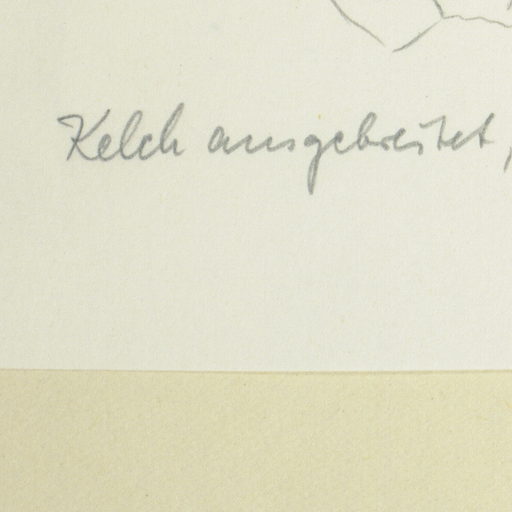 Kelch ausgebreitet,